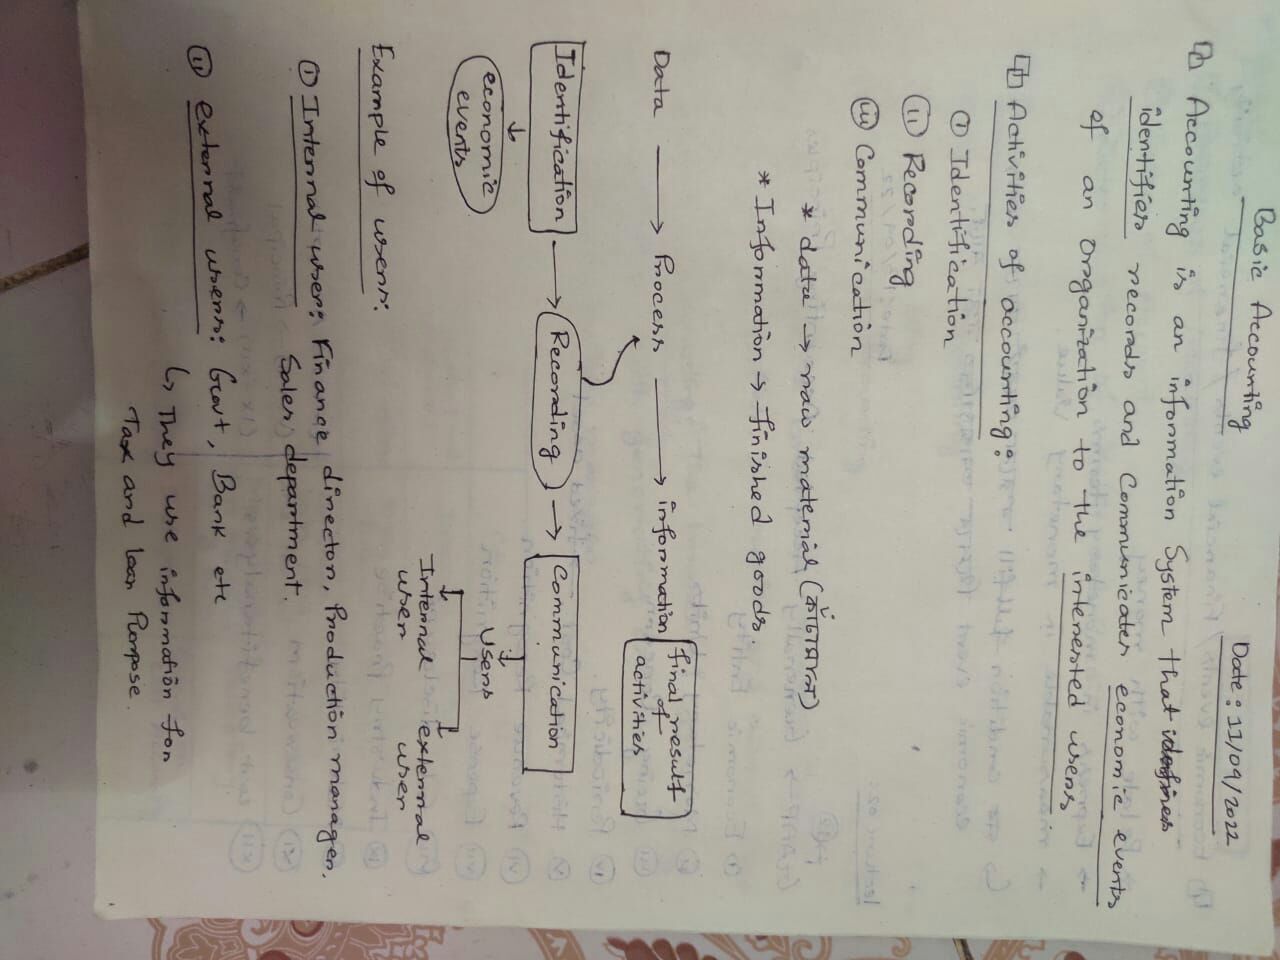 Basic Accounting
Date: 11/09/2022
Accounting is an information System that
identifies records and Communicates economic events
of an organization to the interested users.
Activities of accounting:
(i) Identification
(ii) Recording
(iii) Communication
* data → raw material (কাঁচামাল)
* Information → finished goods.
Data → Process → information
final result
of
activities
Identification → Recording → Communication
economic
events
Users
Internal
user
external
user
Example of users:
(i) Internal user: Finance director, Production manager,
Sales department.
(ii) external users: Govt, Bank etc
↳ They use information for
Tax and loan Purpose.